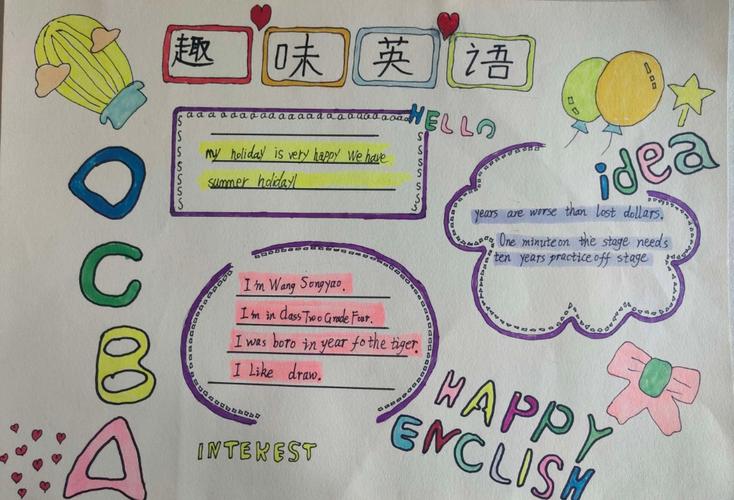 趣味英语
HELLO
my holiday is very happy We have
summer holiday!
idea
years are worse than lost dollars.
One minute on the stage needs
ten years practice off stage
D
C
B
A
I'm Wang Songyao.
I'm in class Two Grade Four.
I was boro in year fo the tiger.
I Like draw.
HAPPY
ENCLISH
INTEKEST